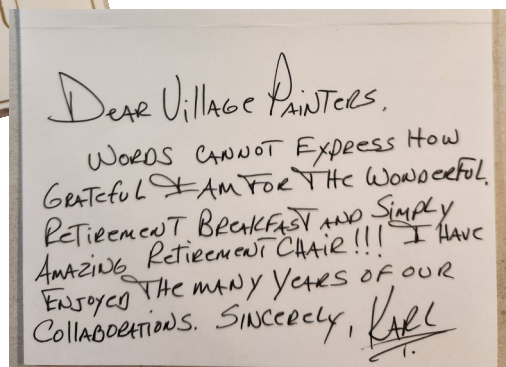 Dear Village Painters,
Words cannot express how
grateful I am for the wonderful
retirement breakfast and simply
amazing retirement chair!!! I have
enjoyed the many years of our
collaborations. Sincerely, Karl